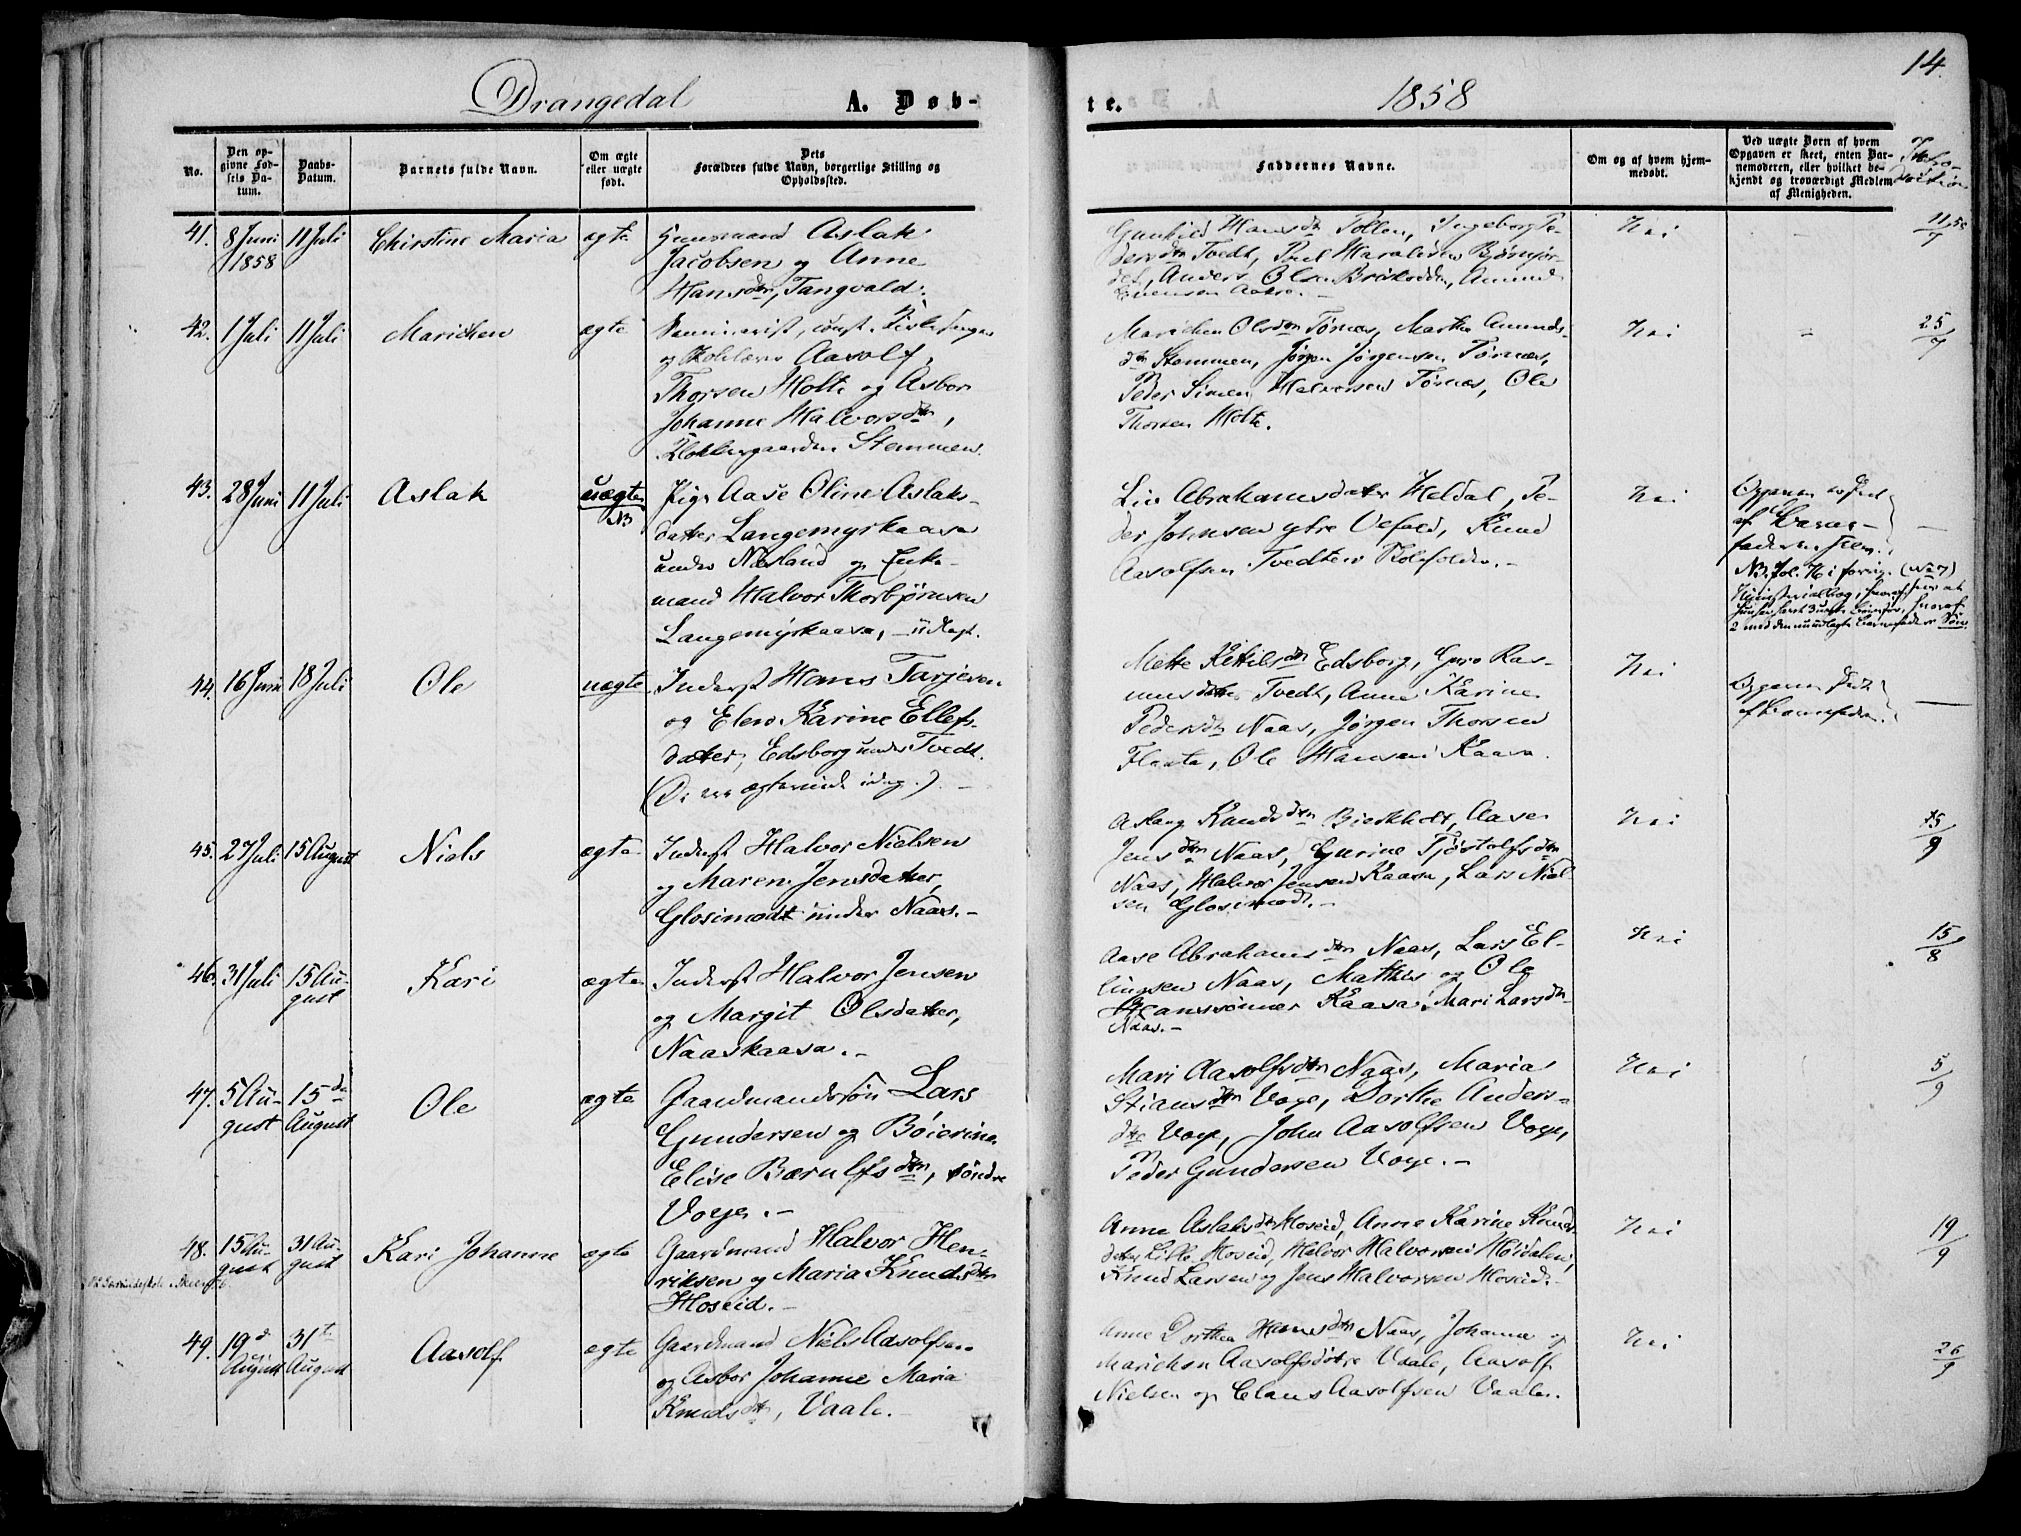 14.
Drangedal
A. Døb-
te.
1858
No.
Den op-
givne Fød-
sels Da-
tum.
Daabs-
Datum.
Barnets fulde Navn.
Om ægte
eller uægte
født.
Dets
Forældres fulde Navn, borgerlige Stilling og
Opholdssted.
Faddernes Navne.
Om og af hvem hjem-
medøbt.
Ved uægte Børn af hvem
Opgaven er skeet, enten Bar-
nemoderen, eller hvilket be-
kjendt og troværdigt Medlem
af Menigheden.
41.
8 Juni
1858
11 Juli
Chirstine Maria
ægte
Aslak
Jacobsen og Anne
Hansdtr, Tangvald.
Gunhild Hansdtr Tollen, Ingeborg Pe-
dersdtr Tvedt, Poul Haraldsen Bjønfjør-
Anders Olsen Amund
Nei
11/7 58
42.
1 Juli
11 Juli
Marichen
ægte
Seminarist, const. Kirkesanger
og Skolelærer Aasolf
Thorsen Holte og Asbor
Johanne Halvorsdtr,
Klokkergaarden Stemmen.
Marichen Olsdtr Tørnes, Marthe Amunds-
dtr Stemmen, Jørgen Jørgensen Tørnæs,
Peder Simen Halvorsen Tørnæs, Ole
Thorsen Holte.
Nei
25/7
43.
28 Juni
11 Juli
Aslak
uægte
NB
Pige Aase Oline Aslaks-
datter Langemyrkaasa
under Næsland og Enke-
mand Halvor Thorbjørnsen
Langemyrkaasa, – udlagt.
Liv Abrahamsdatter Heldal, Pe-
der Johnsen ytre Vefald, Knud
Aasolfsen Tvedten
Nei
Opgaven
af Barne-
faderen
NB. Fol. 76 i forrige
44.
16 Juni
18 Juli
Ole
uægte
Inderst Hans Tarjesen
og Elen Karine Ellefs-
datter, Edsborg under Tvedt.
(De ere ægteviede idag.) –
Mette Kittilsdtr Edsborg, Guro Ras-
musdatter Tvedt, Anne Karine
Pedersdtr Naas, Jørgen Thorsen
Flaata, Ole Hansen Kaasa.
Nei
Opgaven
af Barnefaderen.
45.
27 Juli
15 August
Niels
ægte
Inderst Halvor Nielsen
og Maren Jensdatter,
Glosimodt under Naas. –
Aslaug Knudsdtr Bierkholt, Aase
Jensdtr Naas, Gurine Tjøstolfsdtr
Naas, Halvor Jensen Kaasa, Lars Niel-
sen Glosimodt. –
Nei
15/9
46.
31 Juli
15 Au-
gust
Kari
ægte
Inderst Halvor Jensen
og Margit Olsdatter,
Naaskaasa. –
Aase Abrahamsdtr Naas, Lars El-
lingsen Naas, Mathis og Ole
Hanssønner Kaasa, Mari Larsdtr
Naas. –
Nei
15/8
47.
5 Au-
gust
15de
August
Ole
ægte
Gaardmandssøn Lars
Gundersen og Böierine
Elise Bærulfsdtr, søndre
Voje. –
Mari Aasolfsdtr Naas, Maria
Stiansdtr Voje, Dorthe Anders-
dtr Voje, John Aasolfsen Voje,
Peder Gundersen Voje. –
Nei
5/9
48.
15 Au-
gust
31 Au-
gust
Kari Johanne
ægte
Gaardmand Halvor Hen-
riksen og Maria Knudsdtr
Hoseid. –
Anne Aslaksdtr Hoseid, Anne Karine Knuds-
datter Lille Hoseid, Halvor Halvorsen Høidalen,
Knud Larsen og Jens Halvorsen Hoseid. –
Nei
19/9
49.
19de
August
31te
August
Aasolf
ægte
Gaardmand Niels Aasolfsen
og Asbor Johanne Maria
Knudsdtr, Vaale. –
Anne Dorthea Hansdtr Naas, Johanne og
Marichen Aasolfsdøtre Vaale, Aasolf
Nielsen og Claus Aasolfsen Vaale.
Nei
26/9